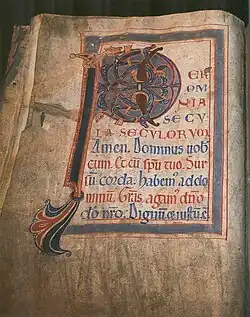 P ER
OM
NIA
SECU
LA SECULORUM
Amen. Dominus uob
cum. Et cu spu tuo. Sur
su corda. habem' ad do
minu. Gras agim' dno
do nro. Dignu et iustu e